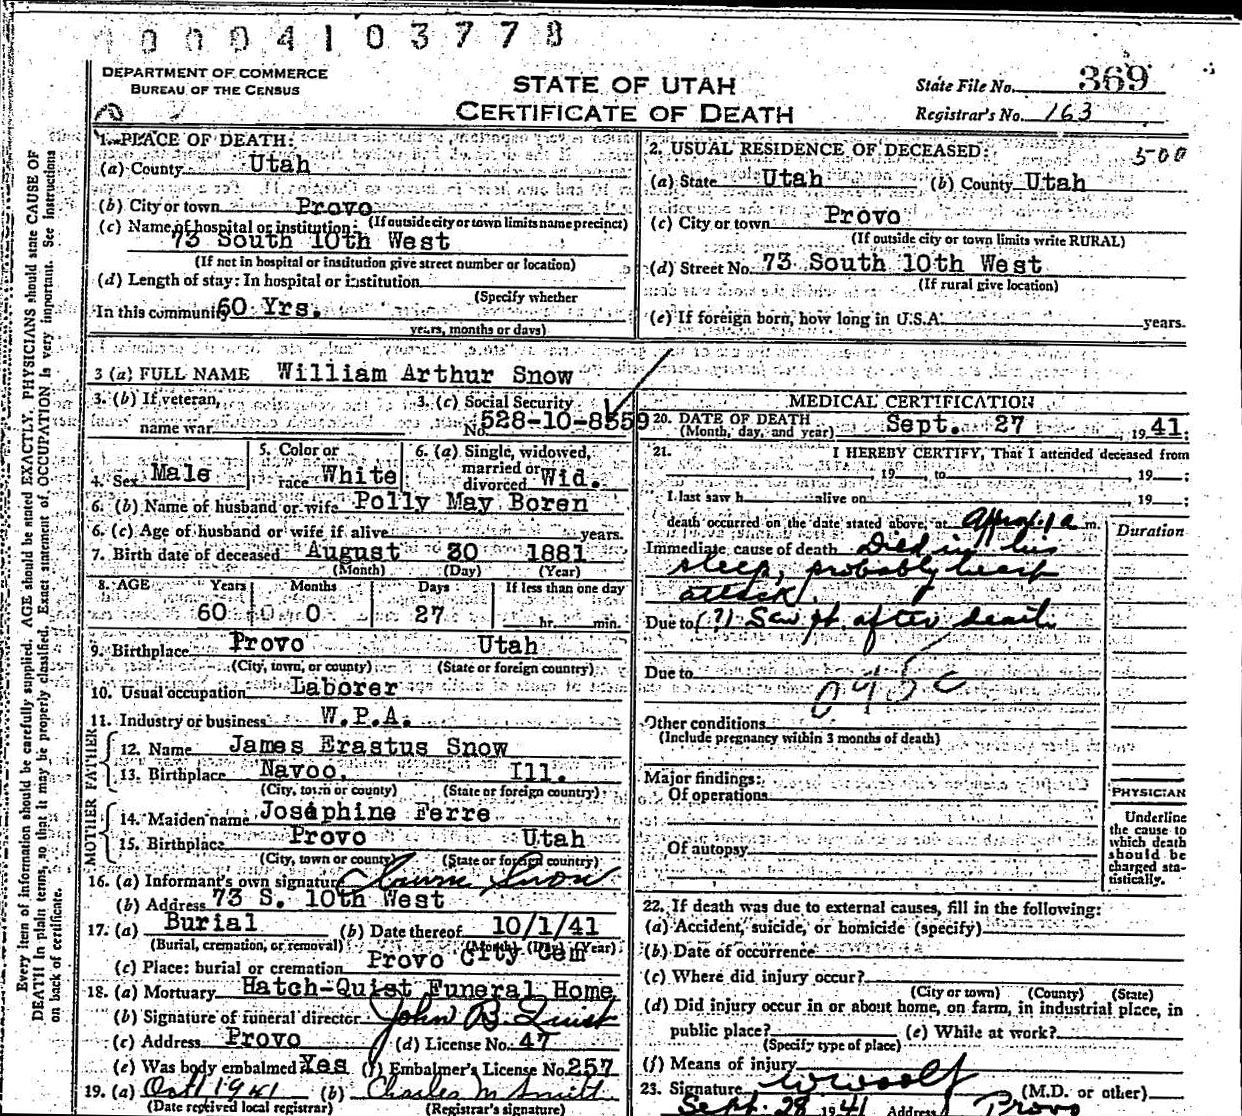 0004103778
DEPARTMENT OF COMMERCE
BUREAU OF THE CENSUS
STATE OF UTAH
CERTIFICATE OF DEATH
State File No. 369
Registrar's No. 163
Every item of information should be carefully supplied. AGE should be stated EXACTLY. PHYSICIANS should state CAUSE OF
DEATH in plain terms, so that it may be properly classified. Exact statement of OCCUPATION is very important. See instructions
on back of certificate.
1. PLACE OF DEATH:
(a) County Utah
(b) City or town Provo
(If outside city or town limits name precinct)
(c) Name of hospital or institution:
73 South 10th West
(If not in hospital or institution give street number or location)
(d) Length of stay: In hospital or institution
(Specify whether
In this community 60 Yrs.
years, months or days)
2. USUAL RESIDENCE OF DECEASED: 500
(a) State Utah (b) County Utah
(c) City or town Provo
(If outside city or town limits write RURAL)
(d) Street No. 73 South 10th West
(If rural give location)
(e) If foreign born, how long in U.S.A. years.
3 (a) FULL NAME William Arthur Snow
3. (b) If veteran,
name war
3. (c) Social Security
No. 528-10-8559
4. Sex Male
5. Color or
race White
6. (a) Single, widowed,
married or
divorced Wid.
6. (b) Name of husband or wife Polly May Boren
6. (c) Age of husband or wife if alive years.
7. Birth date of deceased August 30 1881
(Month) (Day) (Year)
8. AGE Years Months Days If less than one day
60 0 27 hr. min.
9. Birthplace Provo Utah
(City, town, or county) (State or foreign country)
10. Usual occupation Laborer
11. Industry or business W.P.A.
FATHER
12. Name James Erastus Snow
13. Birthplace Navoo. Ill.
(City, town or county) (State or foreign country)
MOTHER
14. Maiden name Josephine Ferre
15. Birthplace Provo Utah
(City, town or county) (State or foreign country)
16. (a) Informant's own signature Snow
(b) Address 73 S. 10th West
17. (a) Burial (b) Date thereof 10/1/41
(Burial, cremation, or removal) (Month) (Day) (Year)
(c) Place: burial or cremation Provo City Cem
18. (a) Mortuary Hatch-Quist Funeral Home
(b) Signature of funeral director John B. Quist
(c) Address Provo (d) License No. 47
(e) Was body embalmed Yes (f) Embalmer's License No. 257
19. (a) Oct 1 1941 (b) Charles M Smith
(Date received local registrar) (Registrar's signature)
MEDICAL CERTIFICATION
20. DATE OF DEATH
(Month, day, and year) Sept. 27, 1941.
21. I HEREBY CERTIFY, That I attended deceased from
, 19 , to , 19 ;
I last saw h alive on , 19 ;
death occurred on the date stated above, at Approx. 1 a m.
Duration
Immediate cause of death Died in his
sleep, probably heart
attack.
Due to (?) Saw pt. after death.
Due to
095 c
Other conditions
(Include pregnancy within 3 months of death)
Major findings:
Of operations
Of autopsy
PHYSICIAN
Underline
the cause to
which death
should be
charged sta-
tistically.
22. If death was due to external causes, fill in the following:
(a) Accident, suicide, or homicide (specify)
(b) Date of occurrence
(c) Where did injury occur?
(City or town) (County) (State)
(d) Did injury occur in or about home, on farm, in industrial place, in
public place? (e) While at work?
(Specify type of place)
(f) Means of injury
23. Signature W Woolf (M.D. or other)
Sept. 28 1941 Address Provo